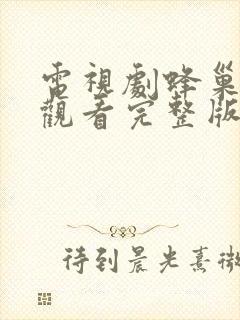 電視劇蜂巢
觀看完整版
待到晨光熹微